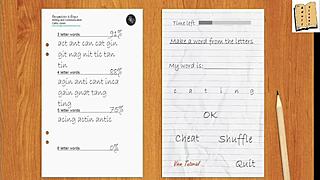 3 letter words 91%
act ant can cat gin
git nag nit tic tan
tin
4 letter words 88%
agin anti cant inca
gain gnat tang
ting
5 letter words 75%
acing actin antic
6 letter words 0%
Time left:
Make a word from the letters
My word is:
c a t i n g
OK
Cheat Shuffle
View Tutorial Quit